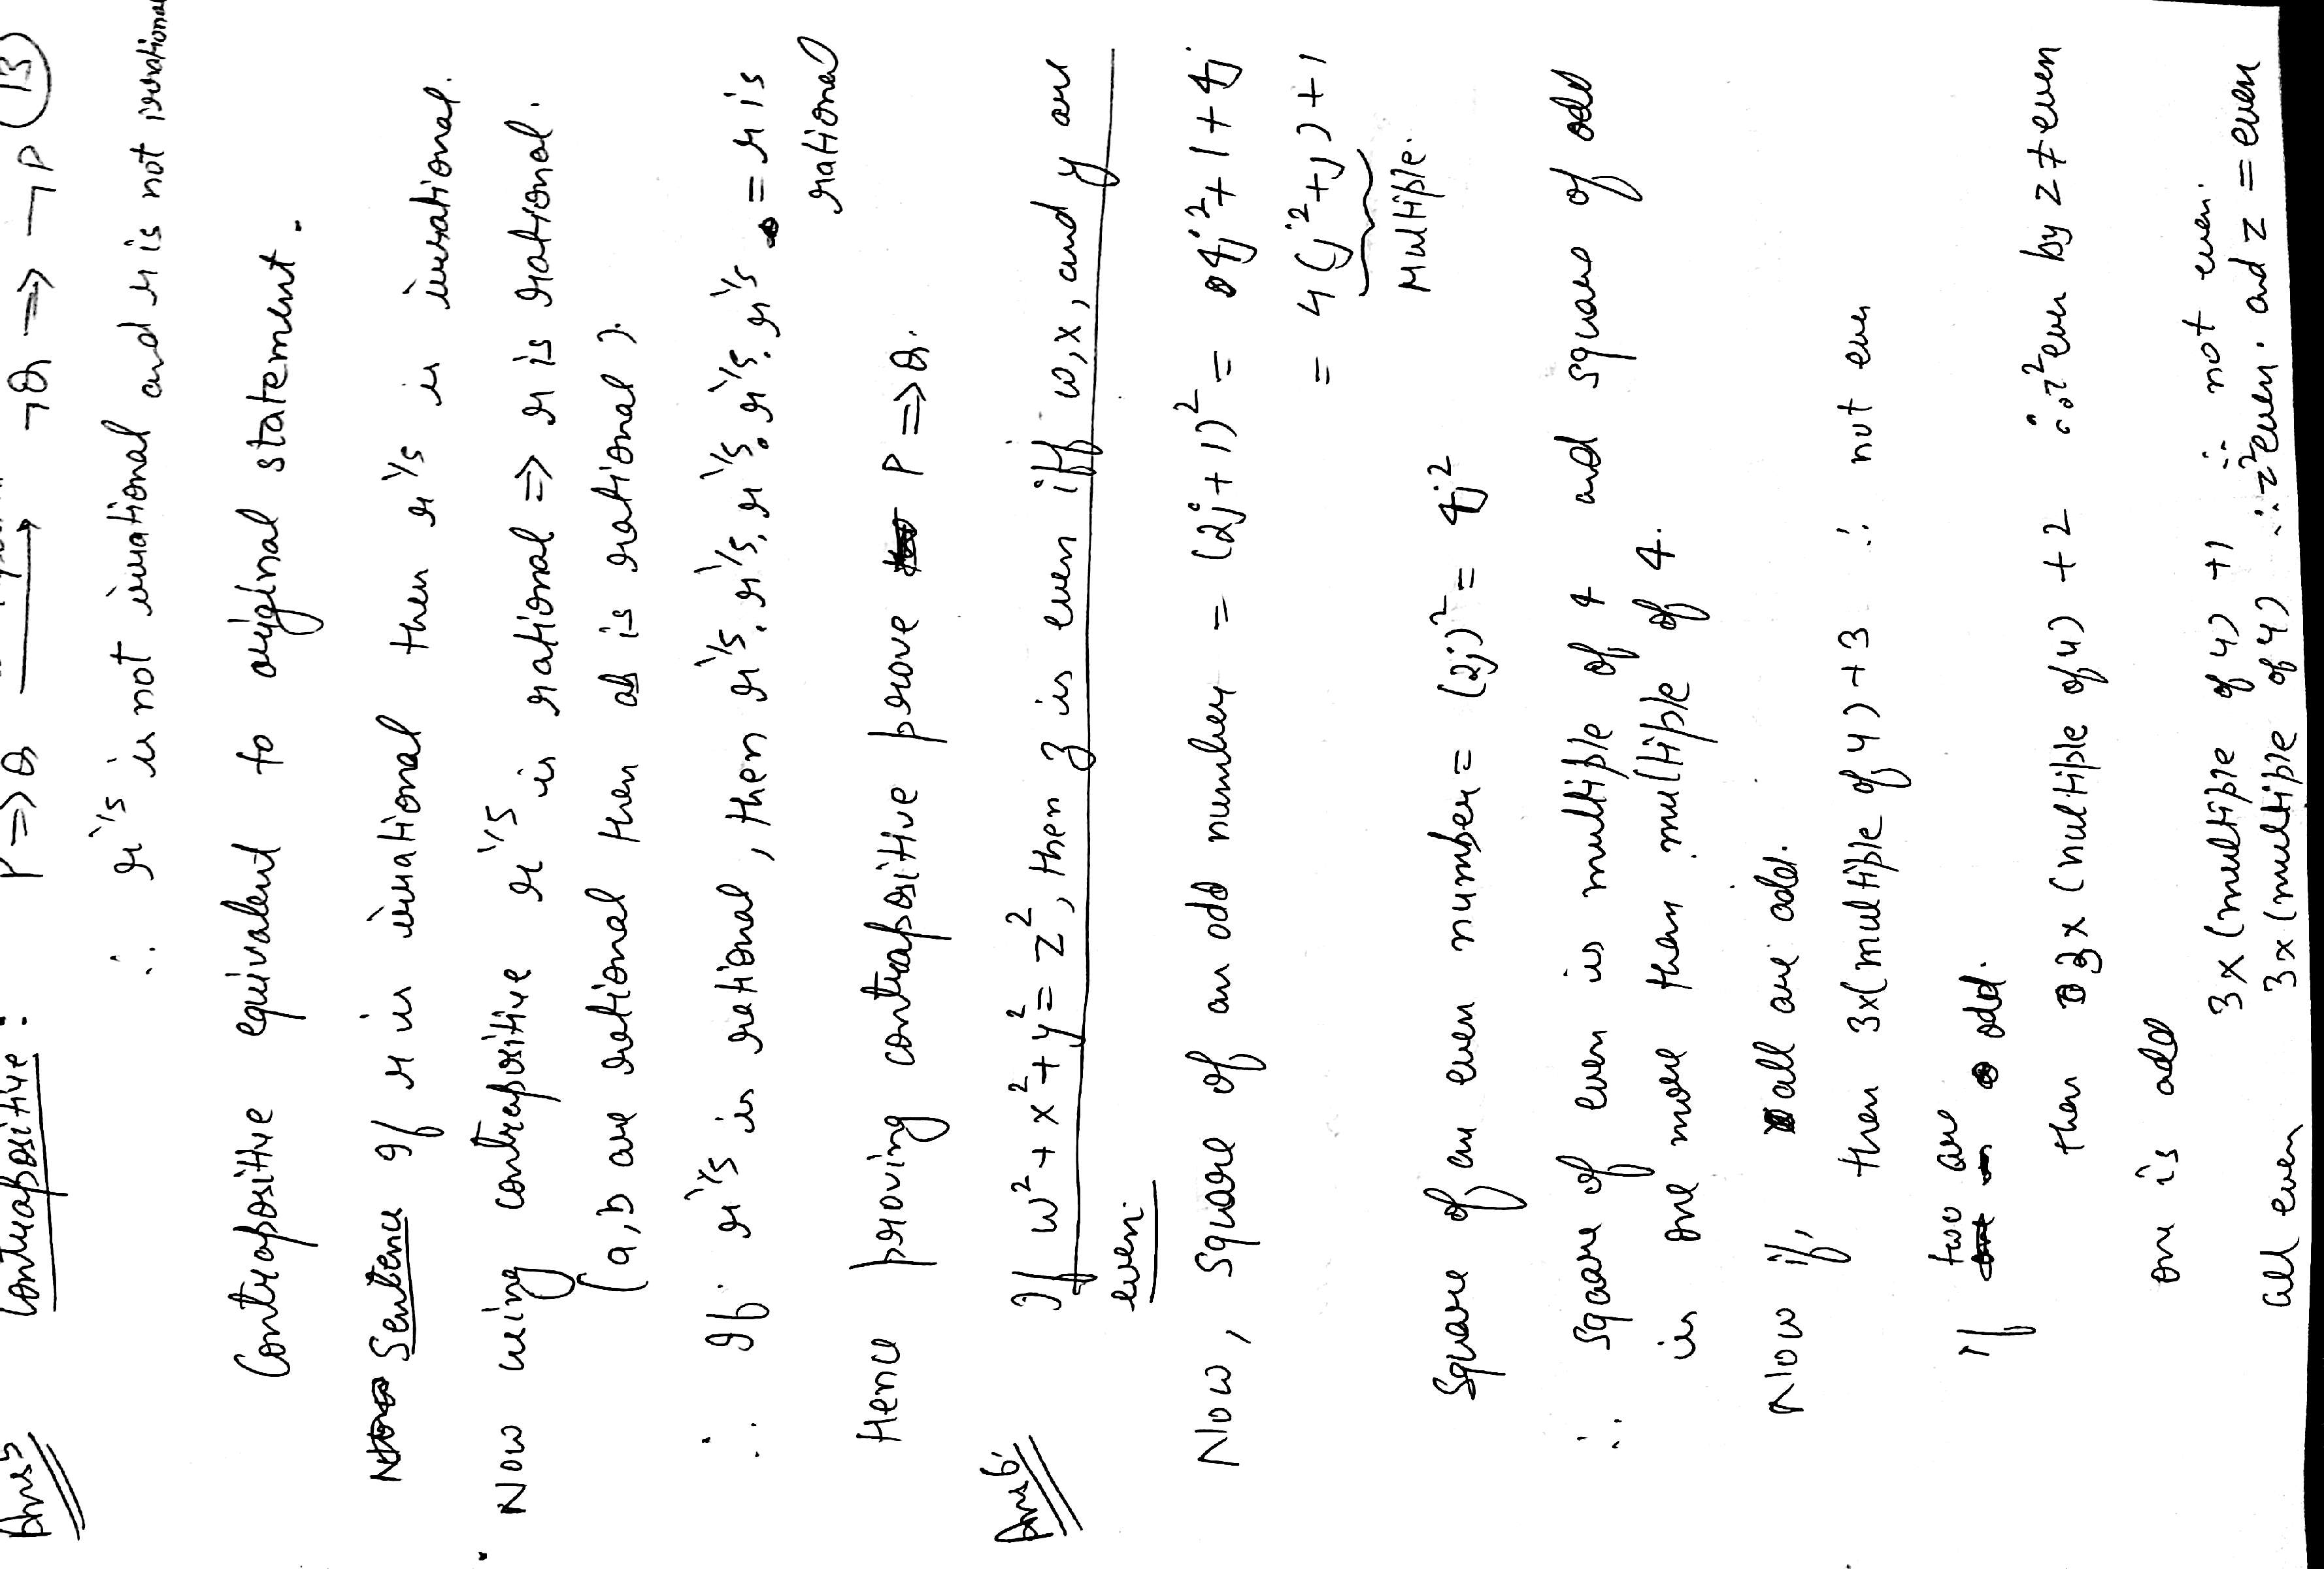 Ans5 Contrapositive : P => Q ¬Q => ¬P 13
∴ r^1/5 is not irrational and r is not irrational
Contrapositive equivalent to original statement.
Sentence If r is irrational then r^1/5 is irrational.
Now using contrapositive r^1/5 is rational => r is rational.
(a,b are rational then ab is rational).
∴ If r^1/5 is rational, then r^1/5. r^1/5. r^1/5. r^1/5. r^1/5 = r is
rational
Hence proving contrapositive prove P => Q.
Ans6. If w² + x² + y² = z², then z is even iff w, x, and y are
even.
Now, square of an odd number = (2j+1)² = 4j² + 1 + 4j
= 4(j²+j) + 1
Multiple.
Square of an even number = (2j)² = 4j²
∴ Square of even is multiple of 4 and square of odd
is one more than multiple of 4.
Now if, all are odd.
then 3x(multiple of 4) + 3 ∴ not even
If two are odd.
then 3x (multiple of 4) + 2 ∴ z² even by z ≠ even
one is odd
3x (multiple of 4) + 1 ∴ not even.
all even 3x (multiple of 4) ∴ z² even. and z = even